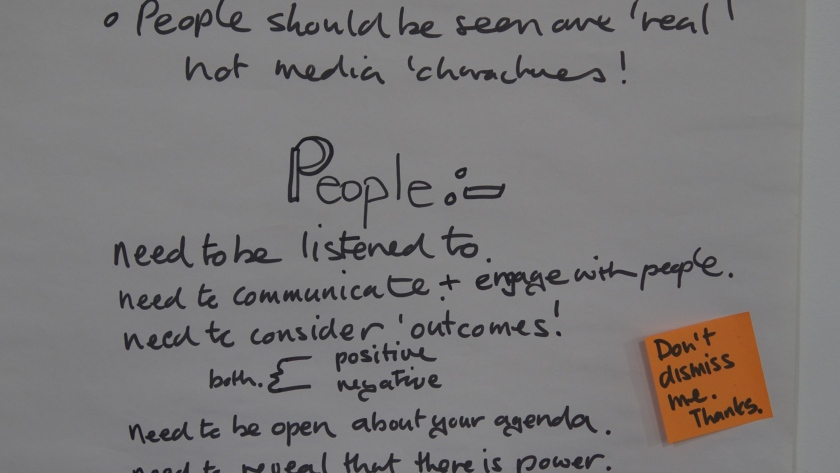 • People should be seen are 'real'
not media 'charachues!
People:-
need to be listened to.
need to communicate + engage with people.
need to consider 'outcomes!
both. { positive
negative
need to be open about your agenda.
need to reveal that there is power.
Don't
dismiss
me.
Thanks.